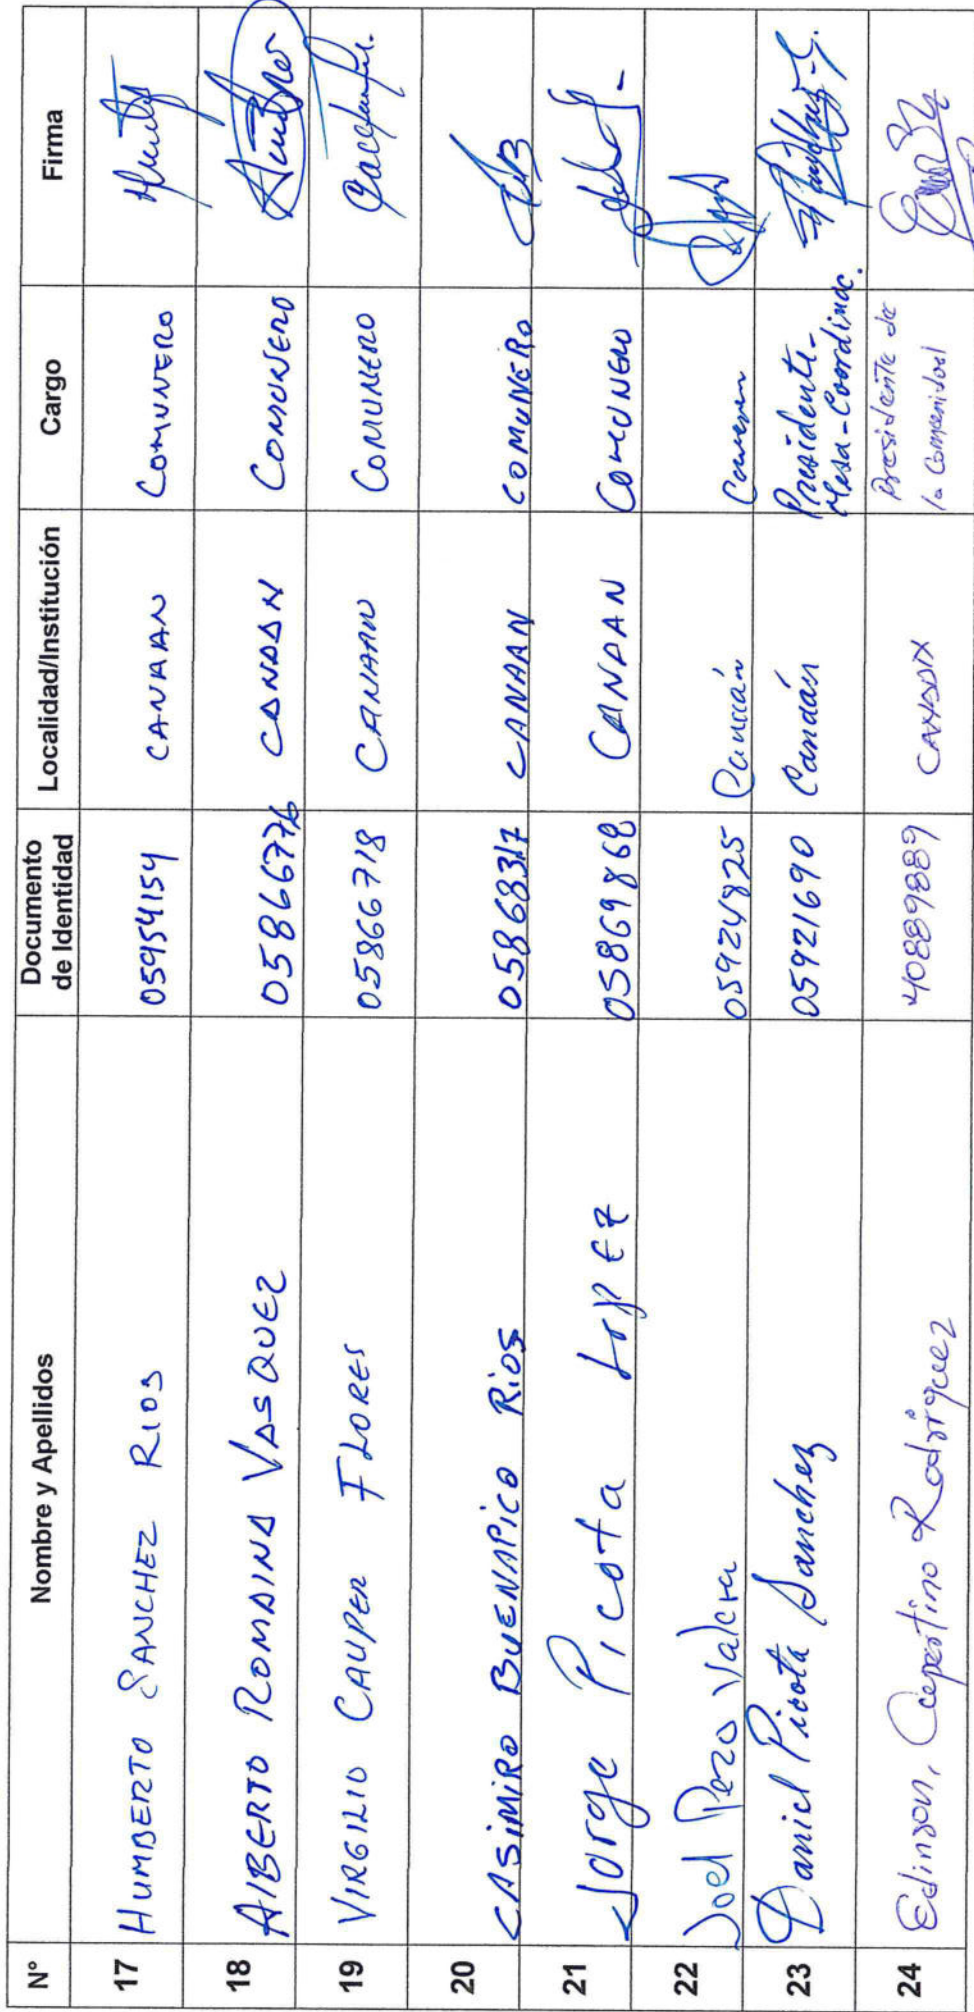 N° Nombre y Apellidos Documento de Identidad Localidad/Institución Cargo Firma
17 HUMBERTO SANCHEZ RIOS 05954154 CANAAN COMUNERO
18 AlBERTO ROMAINA VASQUEZ 05866776 CANAAN COMUNERO
19 VIRGILIO CAUPER FLORES 05866718 CANAAN COMUNERO
20 CASIMIRO BUENAPICO RIOS 05868317 CANAAN COMUNERO
21 Jorge Picota LopEZ 05869868 CANAAN COMUNERO
22 Joel Pezo 05924825
23 Daniel Picota Sanchez 05921690 Canáan Presidente- Mesa-Coordinac.
24 Edinson, Cepertino Rodríguez 40889889 Presidente de la Comunidad